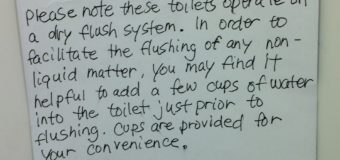 Please note these toilets operate on
a dry flush system. In order to
facilitate the flushing of any non-
liquid matter, you may find it
helpful to add a few cups of water
into the toilet just prior to
flushing. Cups are provided for
your convenience.